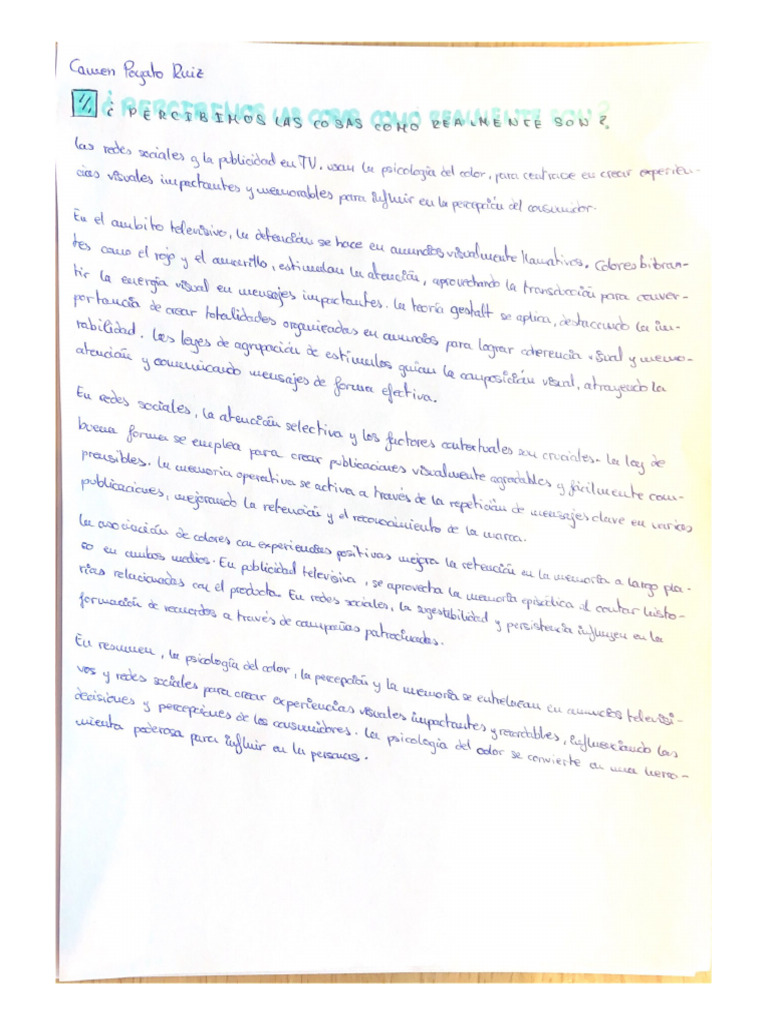 Carmen Poyato Ruiz
¿ PERCIBIMOS LAS COSAS COMO REALMENTE SON ?
Las redes sociales y la publicidad en TV. usan la psicología del color, para centrarse en crear experien-
cias visuales impactantes y memorables para influir en la percepción del consumidor.
En el ambito televisivo, la detención se hace en anuncios visualmente llamativos. Colores bibran-
tes como el rojo y el amarillo, estimulan la atención, aprovechando la transducción para conver-
tir la energía visual en mensajes impactantes. La teoría gestalt se aplica, destacando la im-
portancia de crear totalidades organizadas en anuncios para lograr coherencia visual y memo-
rabilidad. Las leyes de agrupación de estímulos guían la composición visual, atrayendo la
atención y comunicando mensajes de forma efectiva.
En redes sociales, la atención selectiva y los factores contextuales son cruciales. La ley de
buena forma se emplea para crear publicaciones visualmente agradables y fácilmente com-
prensibles. La memoria operativa se activa a través de la repetición de mensajes clave en varias
publicaciones, mejorando la retención y el reconocimiento de la marca.
La asociación de colores con experiencias positivas mejora la retención en la memoria a largo pla-
zo en ambos medios. En publicidad televisiva, se aprovecha la memoria episódica al contar histo-
rias relacionadas con el producto. En redes sociales, la sugestibilidad y persistencia influyen en la
formación de recuerdos a través de campañas patrocinadas.
En resumen, la psicología del color, la percepción y la memoria se entrelazan en anuncios televisi-
vos y redes sociales para crear experiencias visuales impactantes y recordables, influenciando las
decisiones y percepciones de los consumidores. La psicología del color se convierte en una herra-
mienta poderosa para influir en la personas.